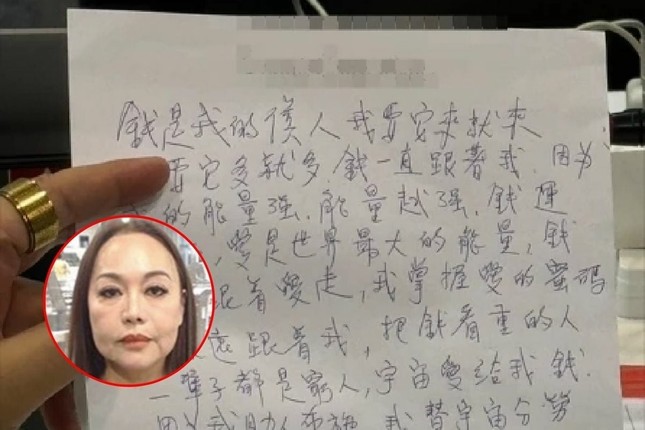 錢是我的僕人我要它來就來
要它多就多錢一直跟著我.因为
的能量强.能量越强.錢運
,愛是世界最大的能量,錢
跟着愛走,我掌握愛的蜜码
跟着我,把錢看重的人
一輩子都是窮人,宇宙愛給我錢.
因为我助人布施 我替宇宙分勞